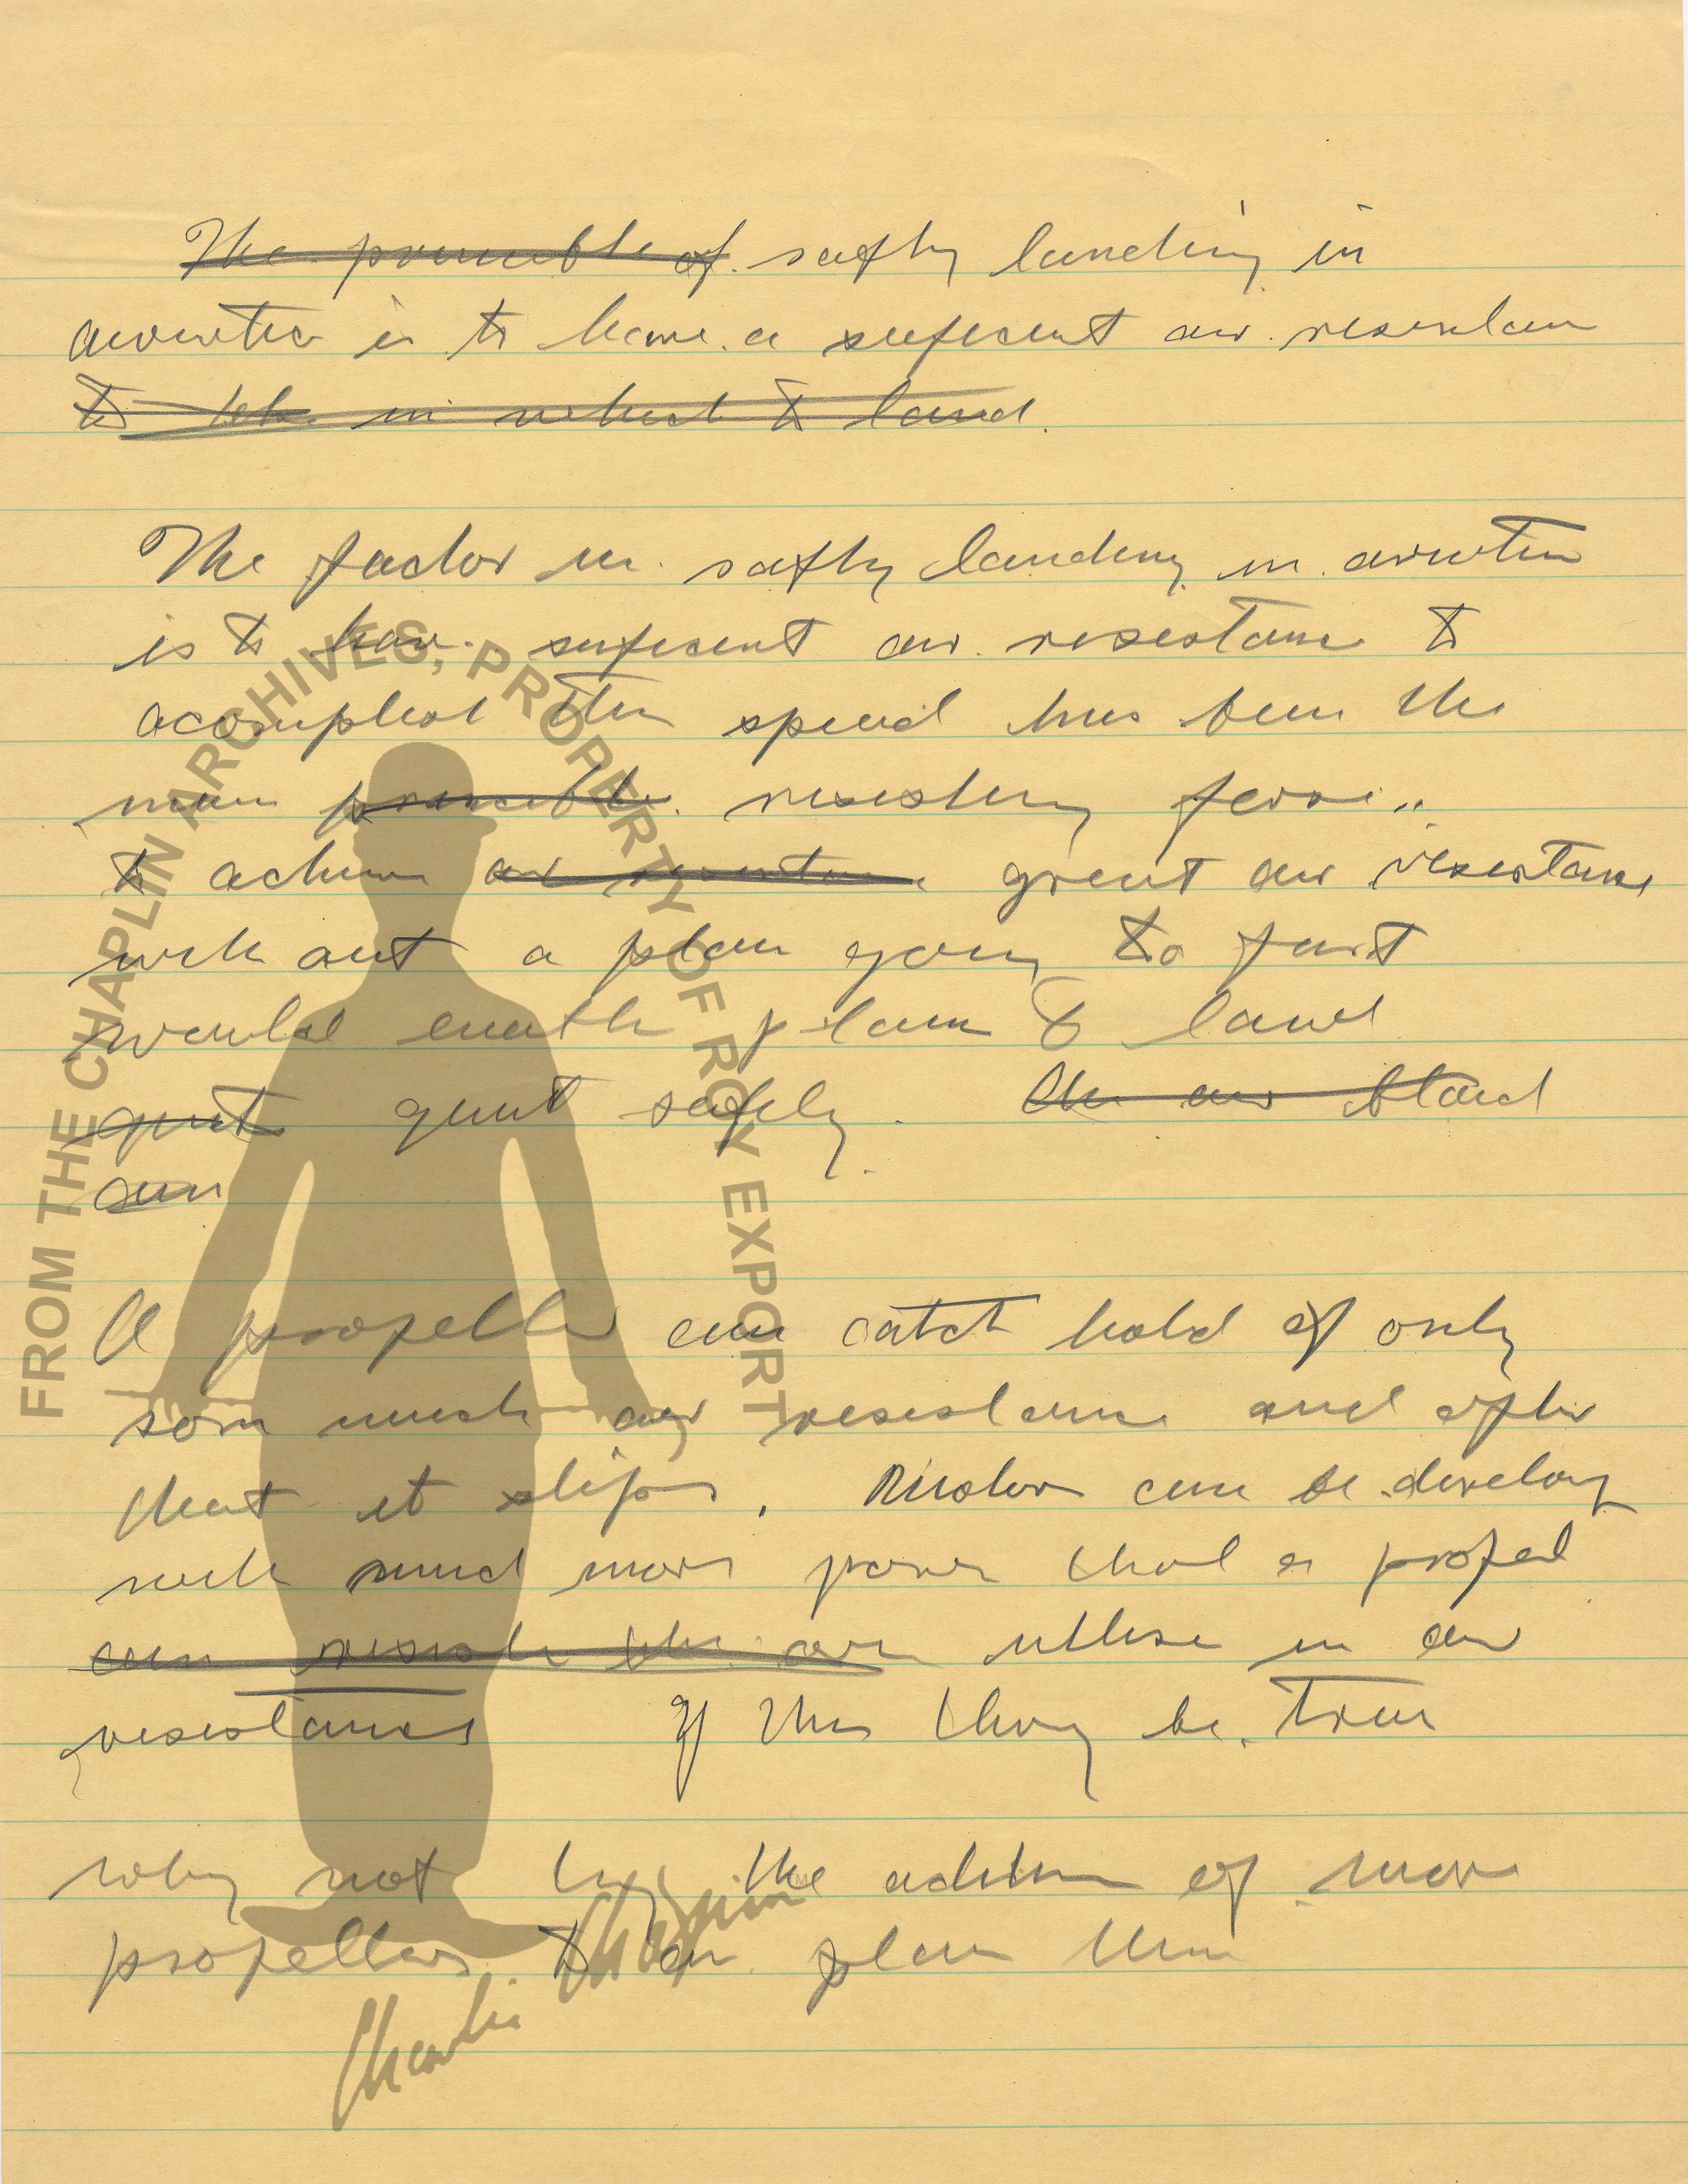 The princible of safty landing in
aviation is to have a suficent air resistance
to in which to land.
The factor in safty landing in aviation
is to have suficent air resistance to
acomplish this speed has been the
main princible resisting force
to achieve air resistance great air resistance
with out a plane going to fast
would enable plane to land
quit quit safely. the air
air
A propeller can catch hold of only
som much air resistance and after
that it slips. Motor can be develop
with much more power that a propel
can resist the air utlise in air
resistance If this thing be true
why not by the adition of more
propellers to a plane
FROM THE CHAPLIN ARCHIVES, PROPERTY OF ROY EXPORT
Charlie Chaplin